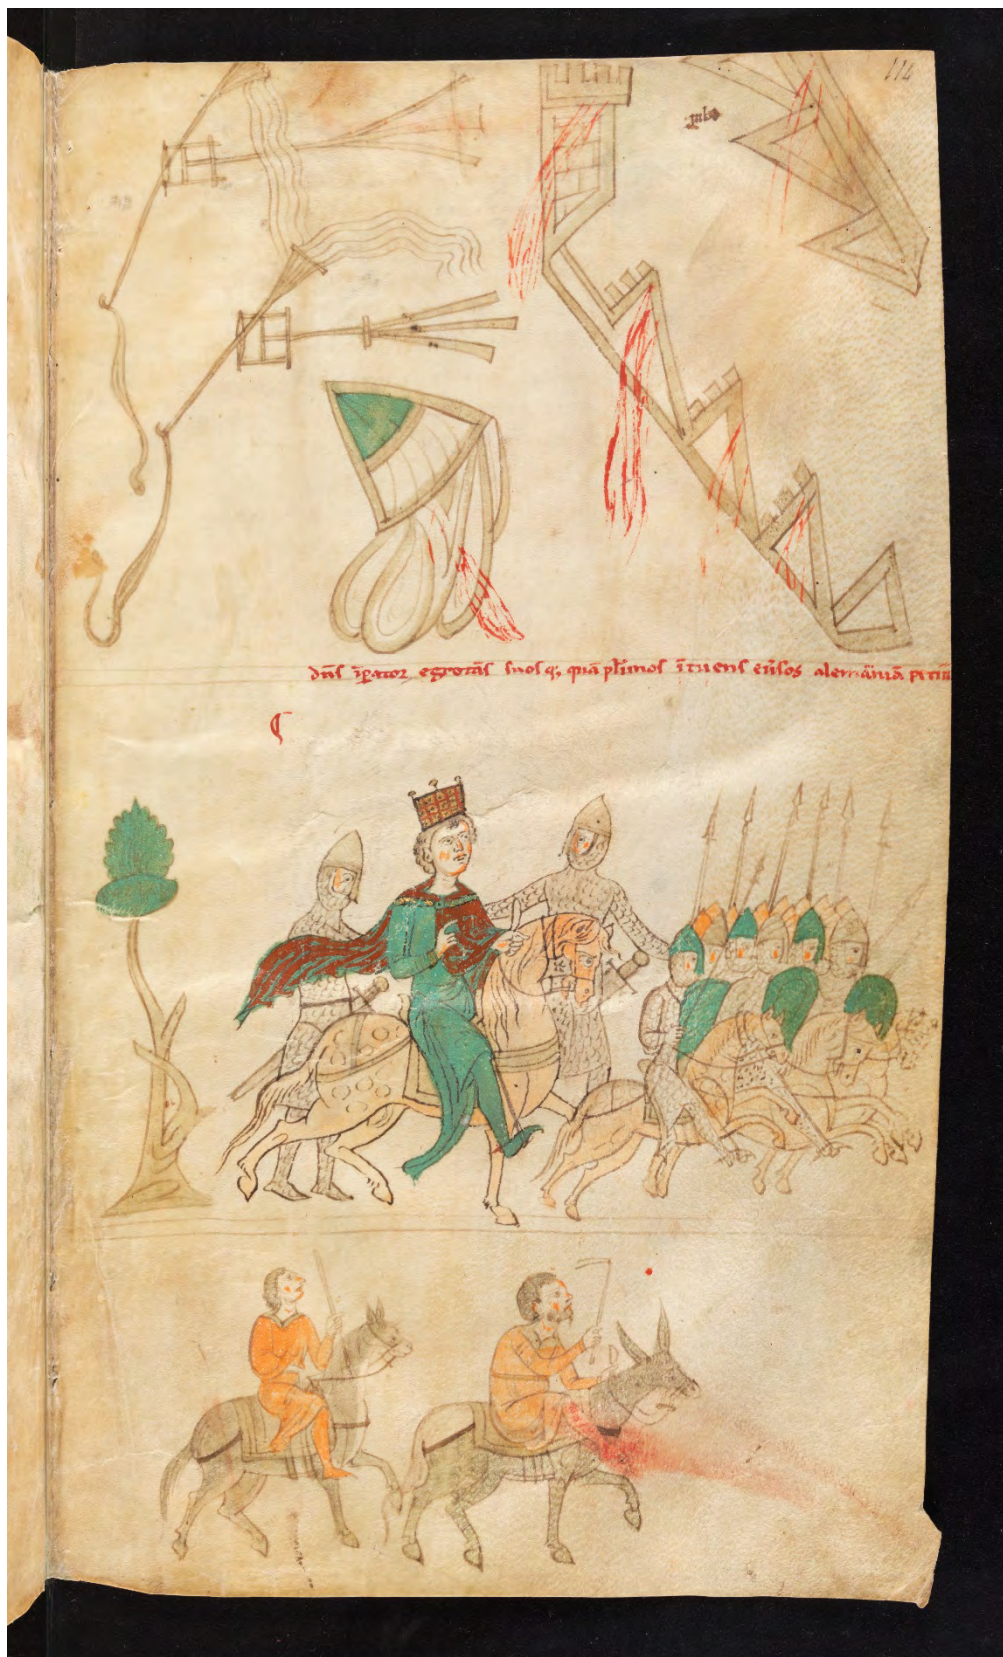 114
dn̄s īp̄ator egrotās suosq; quā pl̄imos ītuens eūsos alemāniā petiit